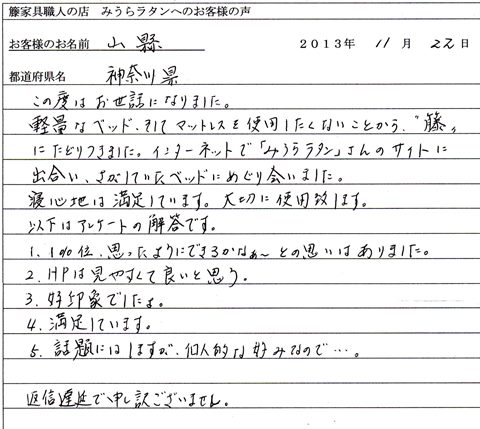 籐家具職人の店 みうらラタンへのお客様の声
お客様のお名前 山縣 2013年 11月 22日
都道府県名 神奈川県
この度はお世話になりました。
軽量なベッド、そしてマットレスを使用したくないことから、"籐"
にたどりつきました。インターネットで「みうらラタン」さんのサイトに
出合い、さがしていたベッドにめぐり会いました。
寝心地は満足しています。大切に使用致します。
以下はアンケートの解答です。
1、1%位、思ったようにできるかなぁ〜との思いはありました。
2、HPは見やすくて良いと思う。
3、好印象でしたよ。
4、満足しています。
5、話題にはしますが、個人的な好みなので…。
返信遅延で申し訳ございません。